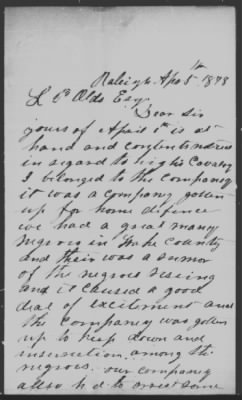 Raleigh Apr 5th 1878
L Olds Esq
Dear Sir
yours of April 1st is at
hand and contents noticed
in regard to high Cavalry
I belonged to the company
it was a company gotten
up for home difence
we had a great many
Negroes in County
and their was a rumor
of the negroes riseing
and it caused a good
deal of excitement and
the company was gotten
up to keep down and
insurection among the
negroes. our company
allso had to arrest some